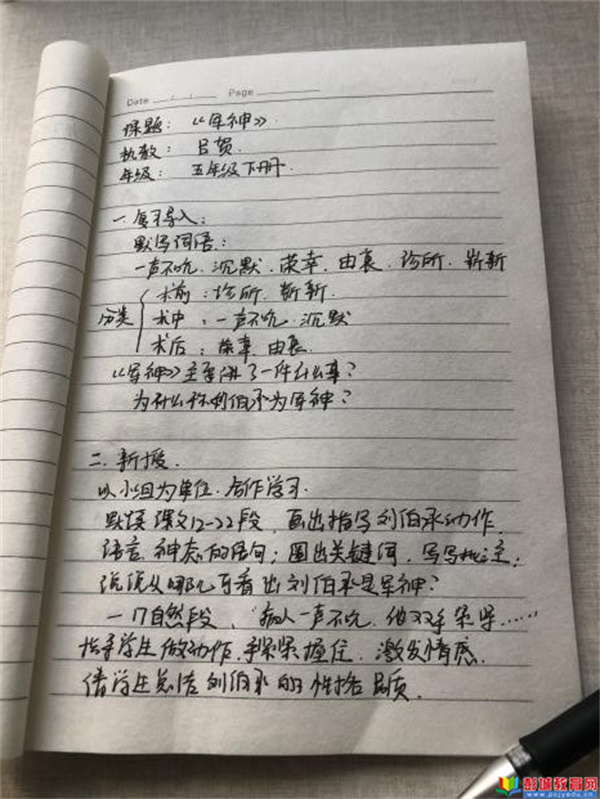 Date / / Page
课题：《军神》
执教：吕贺
年级：五年级下册
一.复习导入：
默写词语：
一声不吭.沉默.荣幸.由衷.诊所.崭新
分类
术前：诊所.崭新.
术中：一声不吭.沉默
术后：荣幸.由衷.
《军神》主要讲了一件什么事？
为什么称刘伯承为军神？
二.新授.
以小组为单位.合作学习.
默读课文12-22段，画出描写刘伯承动作.
语言.神态的语句；圈出关键词，写写批注；
说说从哪儿可看出刘伯承是军神？
一17自然段，"病人一声不吭.他双手紧紧……
指导学生做动作.手紧紧握住.激发情感.
借学生总结刘伯承的性格品质.
彭城教育网
www.pcjyedu.cn